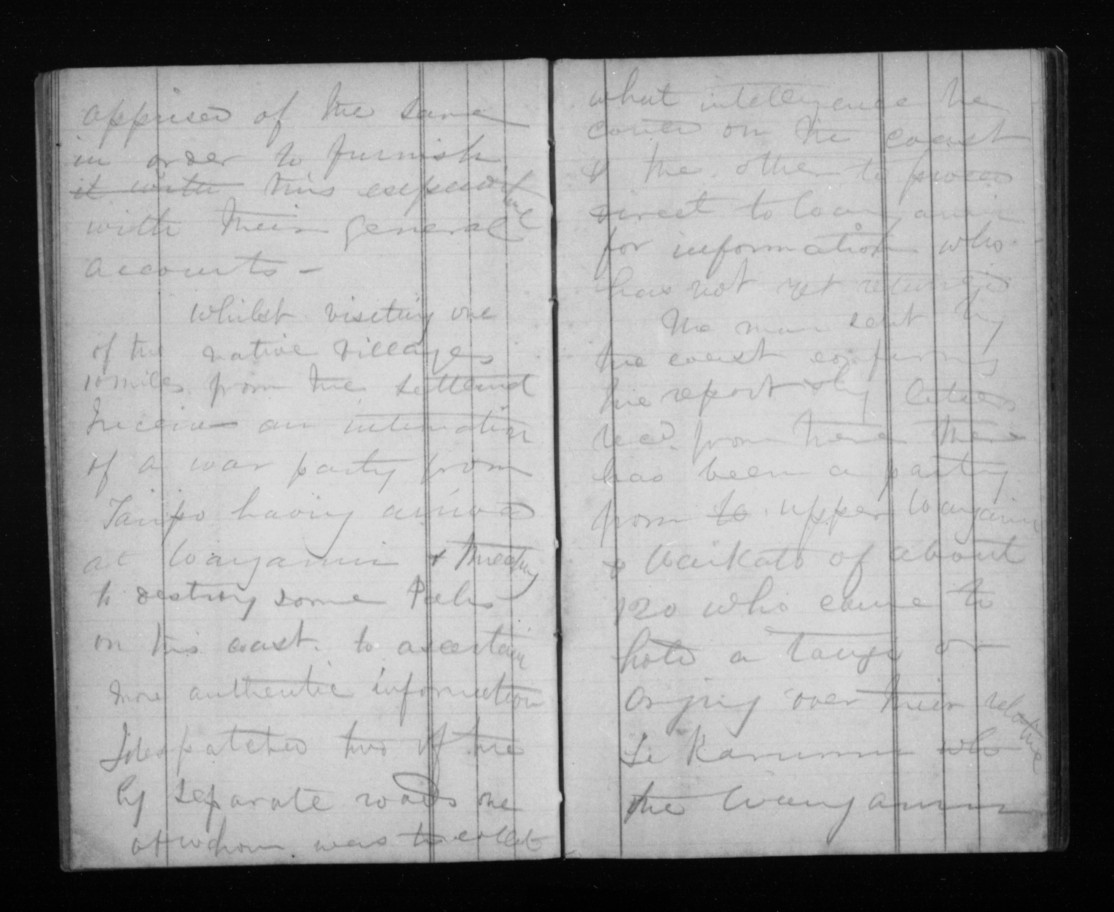 apprised of the same
in order to furnish
it with this expenditure
with their general
accounts –
Whilst visiting one
of the native villages
10 miles from the settlemt
I receiv an intimation
of a war party from
Taupo having arrived
at Wanganui &
to destroy some Pahs
on this coast. to ascertain
more authentic information
I despatched two of the
by separate roads one
of whom was to collect
what intelligence he
could on the coast
& the other to proceed
direct to Wanganui
for information who
has not yet returned
The man sent by
the coast confirms
the report & by letters
recd. from there there
has been a party
from to upper Wanganui
& Waikato of about
120 who came to
hold a Tangi or
crying over their relative
Te who
the Wanganui